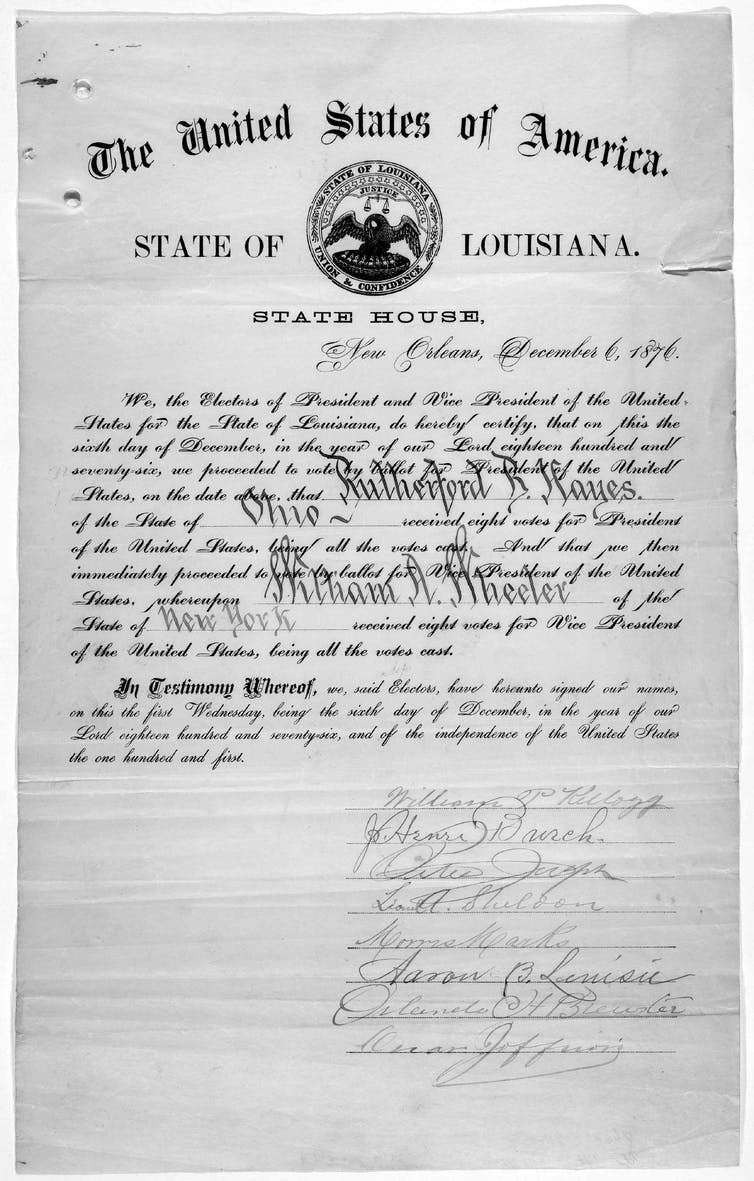 The United States of America.
STATE OF LOUISIANA
JUSTICE
UNION & CONFIDENCE
STATE OF LOUISIANA.
STATE HOUSE,
New Orleans, December 6, 1876.
We, the Electors of President and Vice President of the United
States for the State of Louisiana, do hereby certify, that on this the
sixth day of December, in the year of our Lord eighteen hundred and
seventy-six, we proceeded to vote by ballot for President of the United
States, on the date above, that Rutherford B. Hayes.
of the State of Ohio received eight votes for President
of the United States, being all the votes cast. And that we then
immediately proceeded to vote by ballot for Vice President of the United
States, whereupon William A. Wheeler of the
State of New York received eight votes for Vice President
of the United States, being all the votes cast.
In Testimony Whereof, we, said Electors, have hereunto signed our names,
on this the first Wednesday, being the sixth day of December, in the year of our
Lord eighteen hundred and seventy-six, and of the independence of the United States
the one hundred and first.
William P Kellogg
J. Henri Burch.
Peter Joseph
A. Sheldon
Morris Marks
Aaron B. Levisee
Orlando H Brewster
Oscar Joffrion